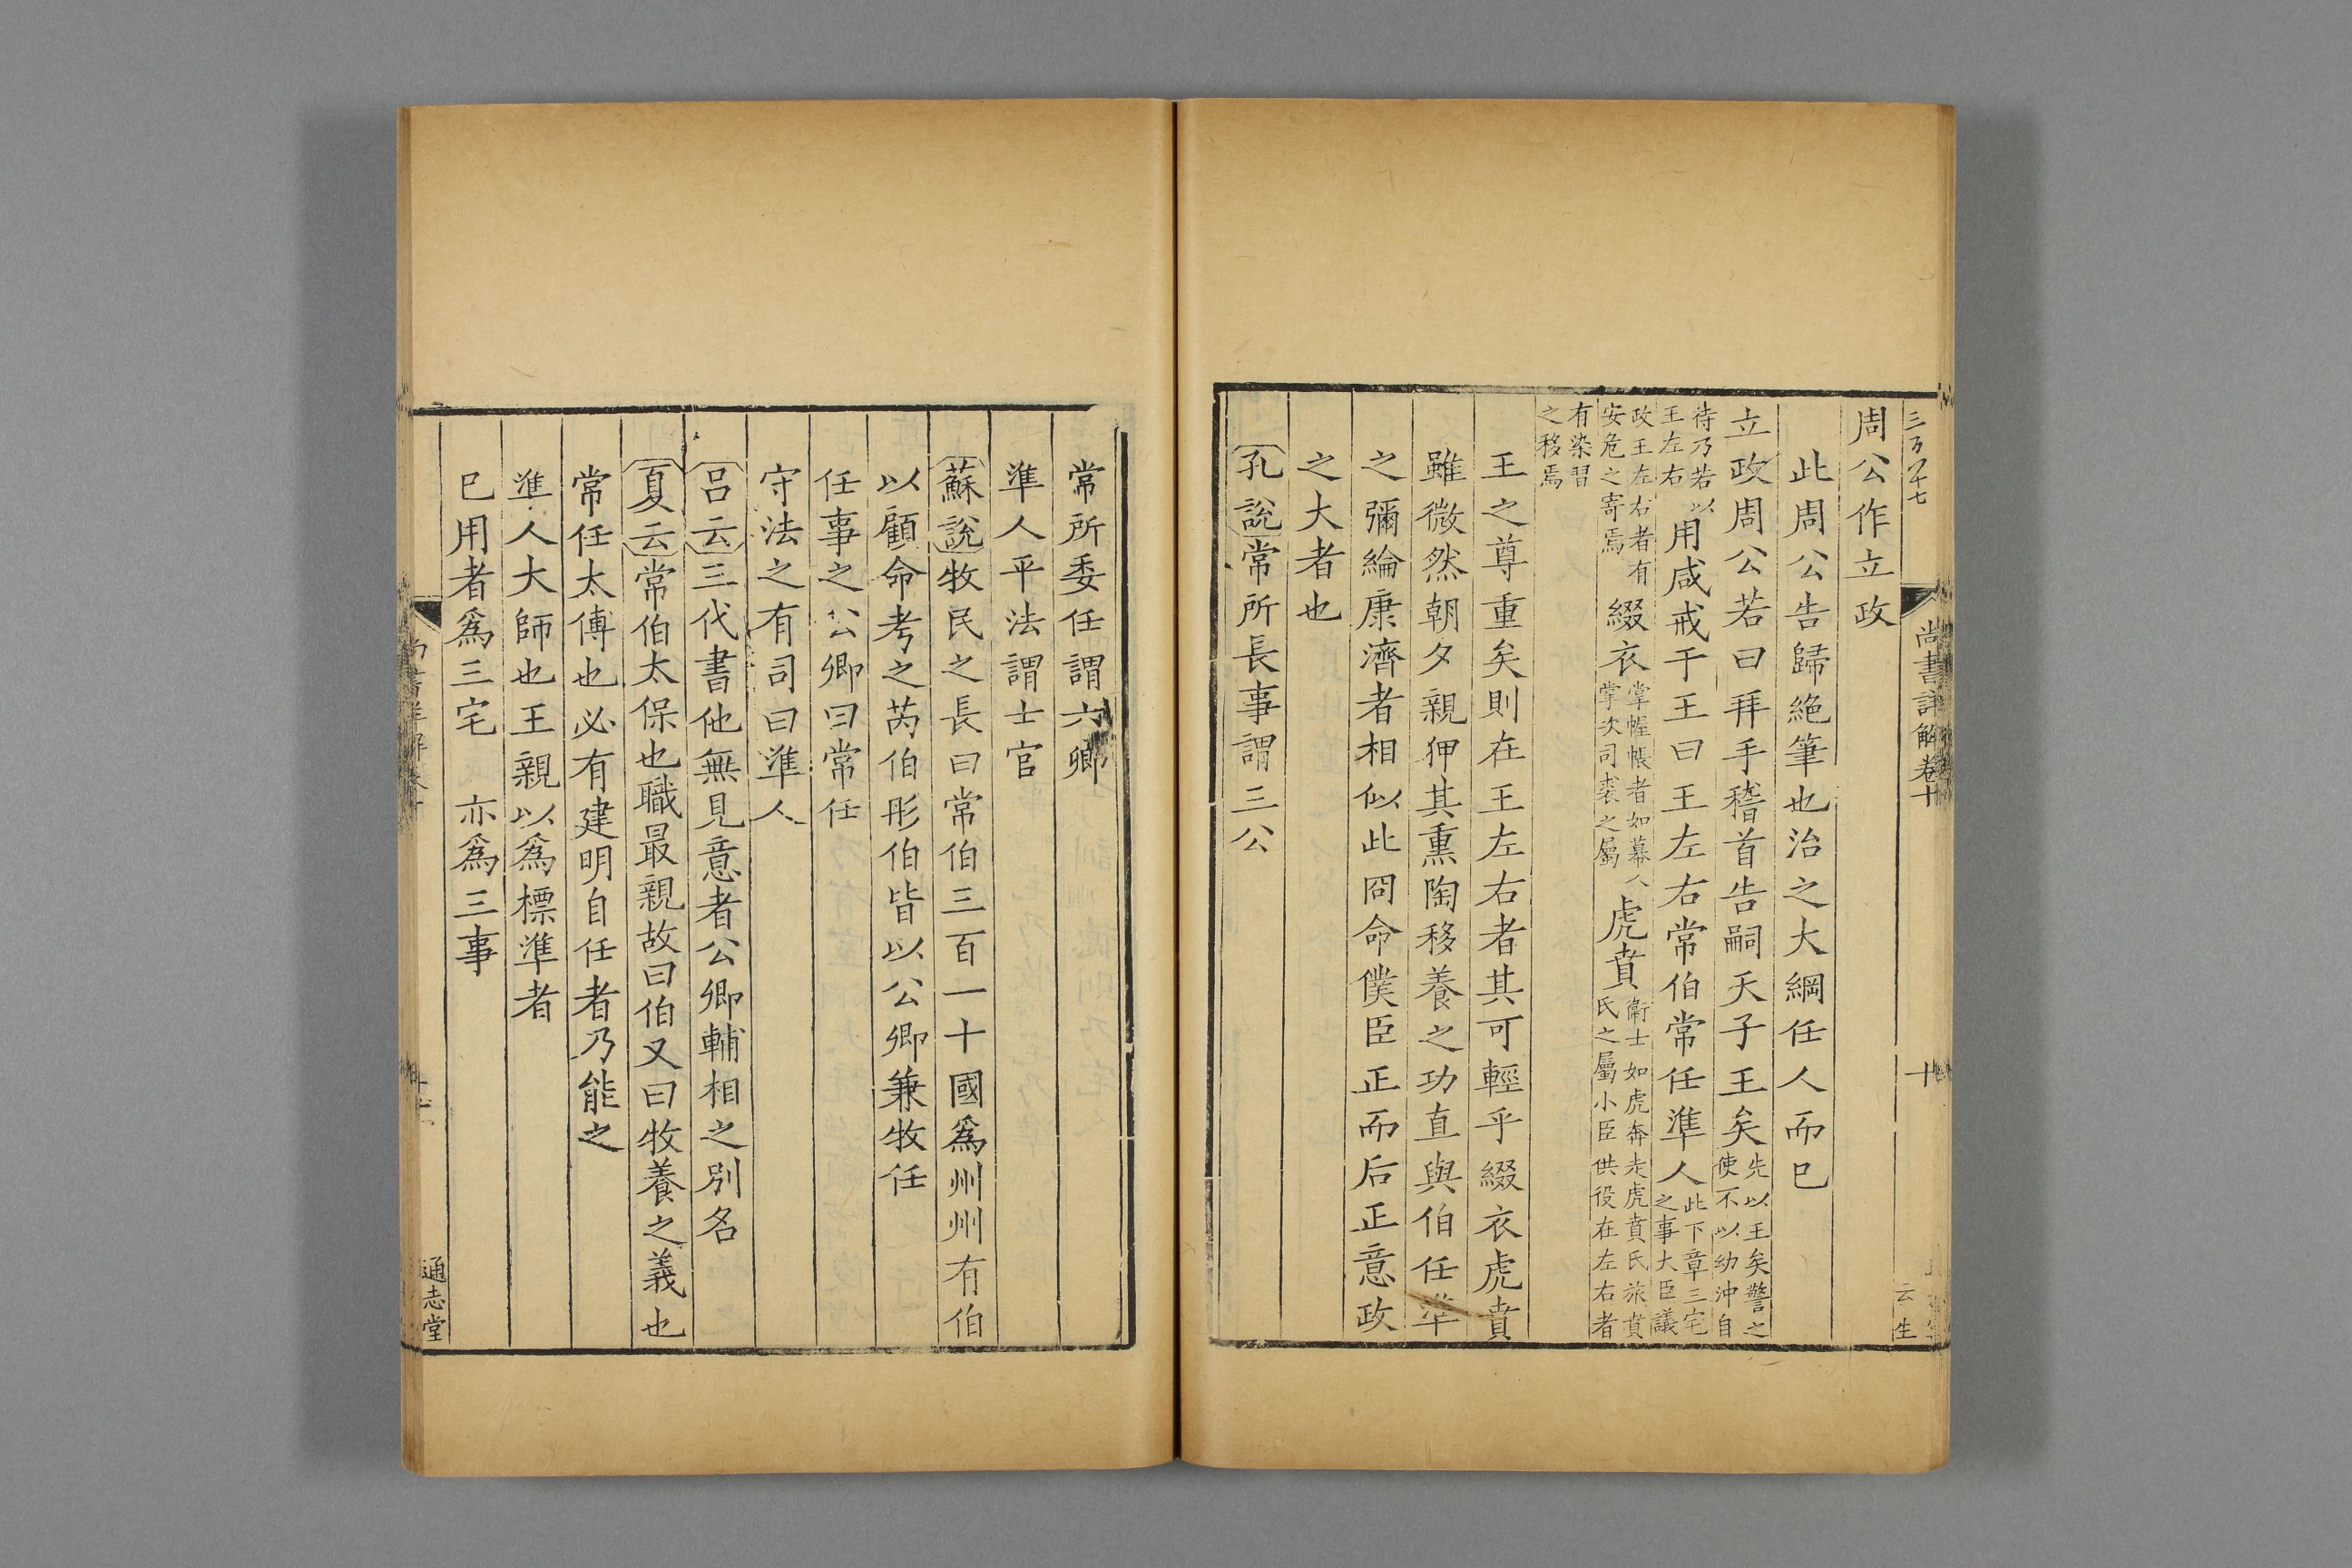 尚書詳解卷十
十
云生
周公作立政
此周公告歸絕筆也治之大綱任人而巳
立政周公若曰拜手稽首告嗣天子王矣先以王矣警之使不以幼沖自
待乃若以王左右用咸戒于王曰王左右常伯常任準人此下章三宅之事大臣議
政王左右者有安危之寄焉綴衣掌幄帳者如幕人掌次司裘之屬虎賁衛士如虎奔走虎賁氏旅賁氏之屬小臣供役在左右者
有染習之移焉
王之尊重矣則在王左右者其可輕乎綴衣虎賁
雖微然朝夕親狎其熏陶移養之功直與伯任準
之彌綸康濟者相似此冏命僕臣正而后正意政
之大者也
孔說常所長事謂三公
常所委任謂六卿
準人平法謂士官
蘇說牧民之長曰常伯三百一十國爲州州有伯
以顧命考之芮伯彤伯皆以公卿兼牧任
任事之公卿曰常任
守法之有司曰準人
呂云三代書他無見意者公卿輔相之別名
夏云常伯太保也職最親故曰伯又曰牧養之義也
常任太傅也必有建明自任者乃能之
準人大師也王親以爲標準者
巳用者爲三宅 亦爲三事
通志堂